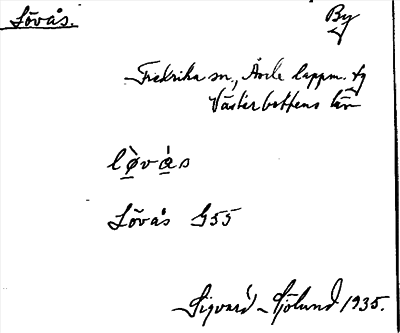 Lövås. By
Fredrika sn, Åsele lappm. tg
Västerbottens län
lò̲va̲̍s
Lövås G55
Sigvard Sjölund 1935.